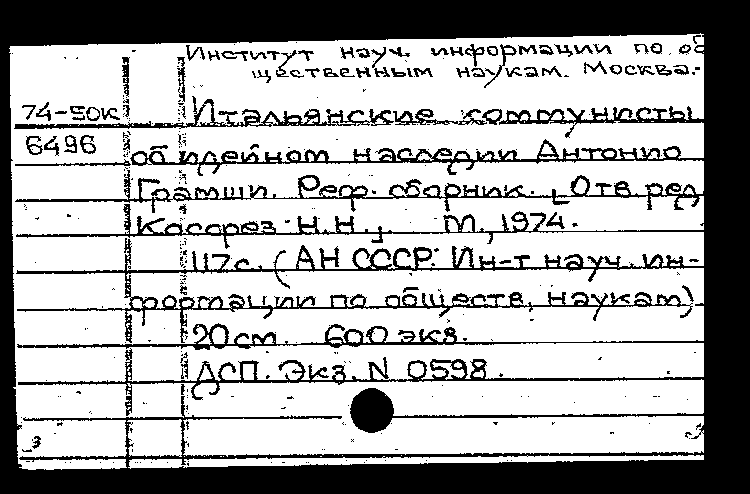 Институт науч. информации по об
щественным наукам. Москва.-
74-50к
Итальянские коммунисты
6496
об идейном наследии Антонио
Грамши. Реф. сборник. [Отв. ред.
Касорез Н.Н.]. М., 1974.
117с. (АН СССР. Ин-т науч. ин-
формации по обществ. наукам)
20см. 600 экз.
ДСП. Экз. N 0598.